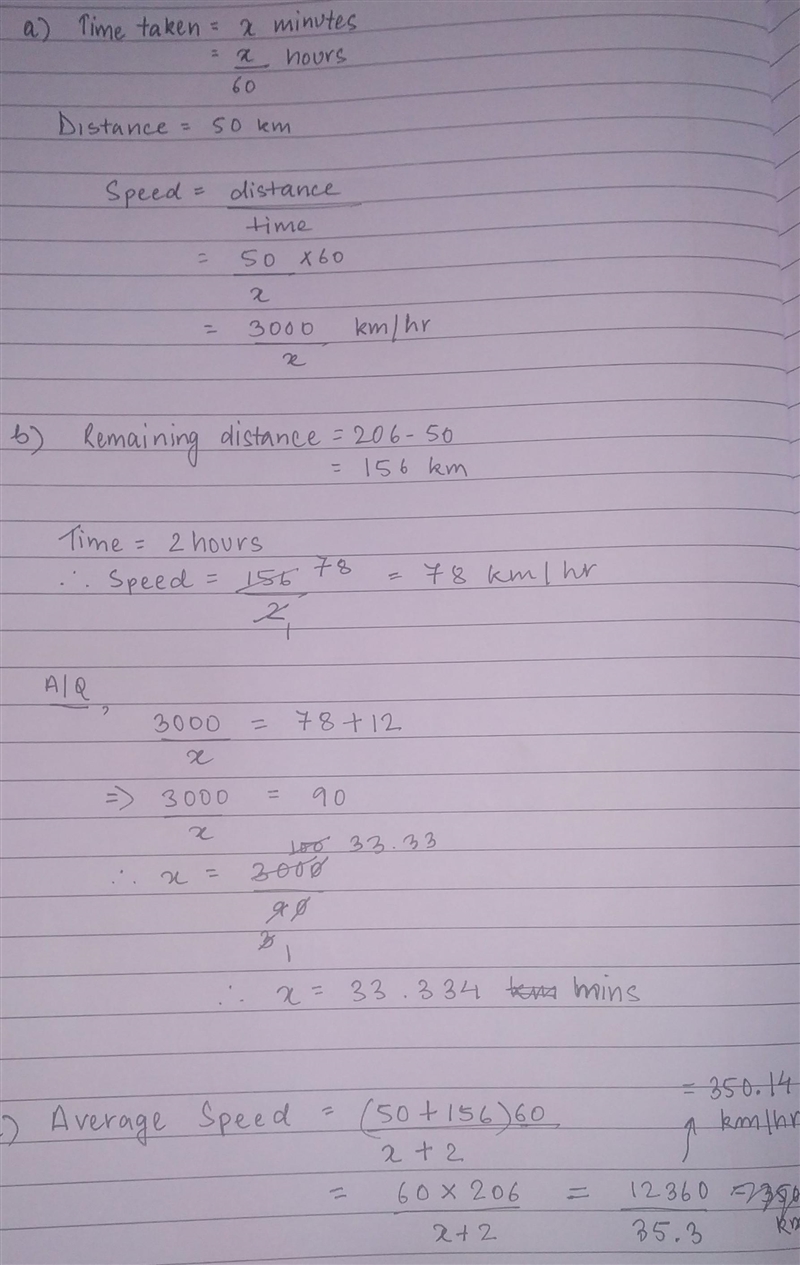 a) Time taken = x minutes
= x/60 hours
Distance = 50 km
Speed = distance/time
= 50/x × 60
= 3000/x km/hr
b) Remaining distance = 206 - 50
= 156 km
Time = 2 hours
∴ Speed = 156/2 78 1 = 78 km/hr
A/Q,
3000/x = 78 + 12
=> 3000/x = 90
100 33.33
∴ x = 3000/90
3 1
∴ x = 33.334 mins
= 350.14
) Average Speed = (50 + 156)60/x + 2 km/hr
= 60 × 206/x + 2 = 12360/35.3